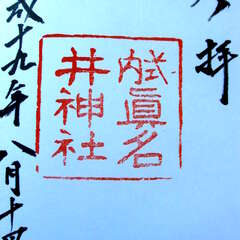 拝
式内眞名
井神社
成十九年八月十四